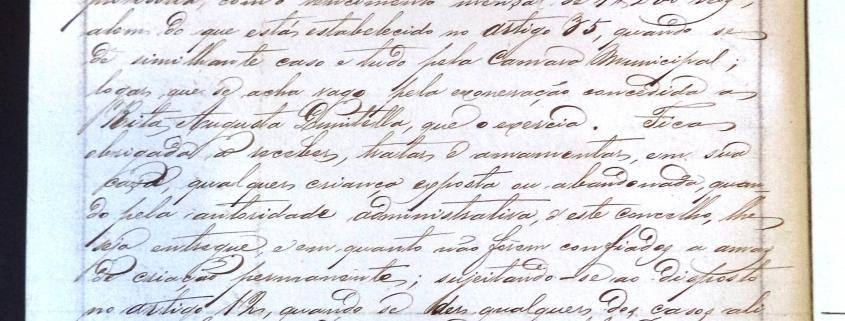 com o vencimento mensal de
alem do que está estabelecido no artigo 35, quando se
dê similhante caso e tudo pela Camara Municipal;
logar que se acha vago pela exoneração concedida a
Rita Augusta que o exercia. Fica
obrigada a receber, tratar e amamentar, em sua
casa, qualquer criança exposta ou abandonada, quan-
do pela autoridade administrativa, d'este concelho, lhe
seja entregue, e em quanto não forem confiados a amas
de criação permanente; sujeitando-se ao disposto
no artigo 12, quando se der qualquer dos casos ali